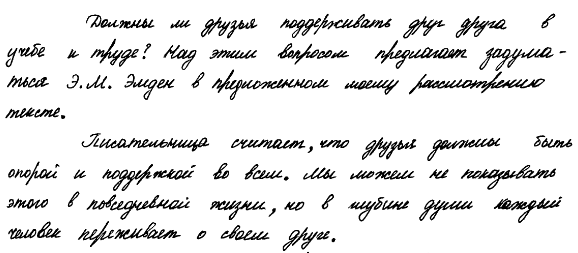 Должны ли друзья поддерживать друг друга в
учебе и труде? Над этим вопросом предлагает задума-
ться Э.М. Эмден в предложенном моему рассмотрению
тексте.
Писательница считает, что друзья должны быть
опорой и поддержкой во всем. Мы можем не показывать
этого в повседневной жизни, но в глубине души каждый
человек переживает о своем друге.